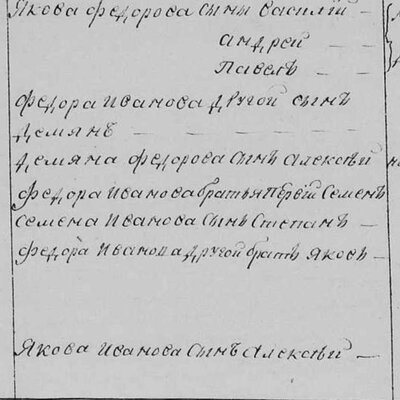 Якова Федорова сыны Василий —
Андрей — —
Павелъ — —
Федора Иванова другой сынъ
Демянъ — — — — —
Демяна Федорова сынъ Алексѣй
Федора Иванова братья первый Семенъ
Семена Иванова сынъ Степанъ —
Федора Иванова другой братъ Яковъ —
Якова Иванова сынъ Алексѣй —